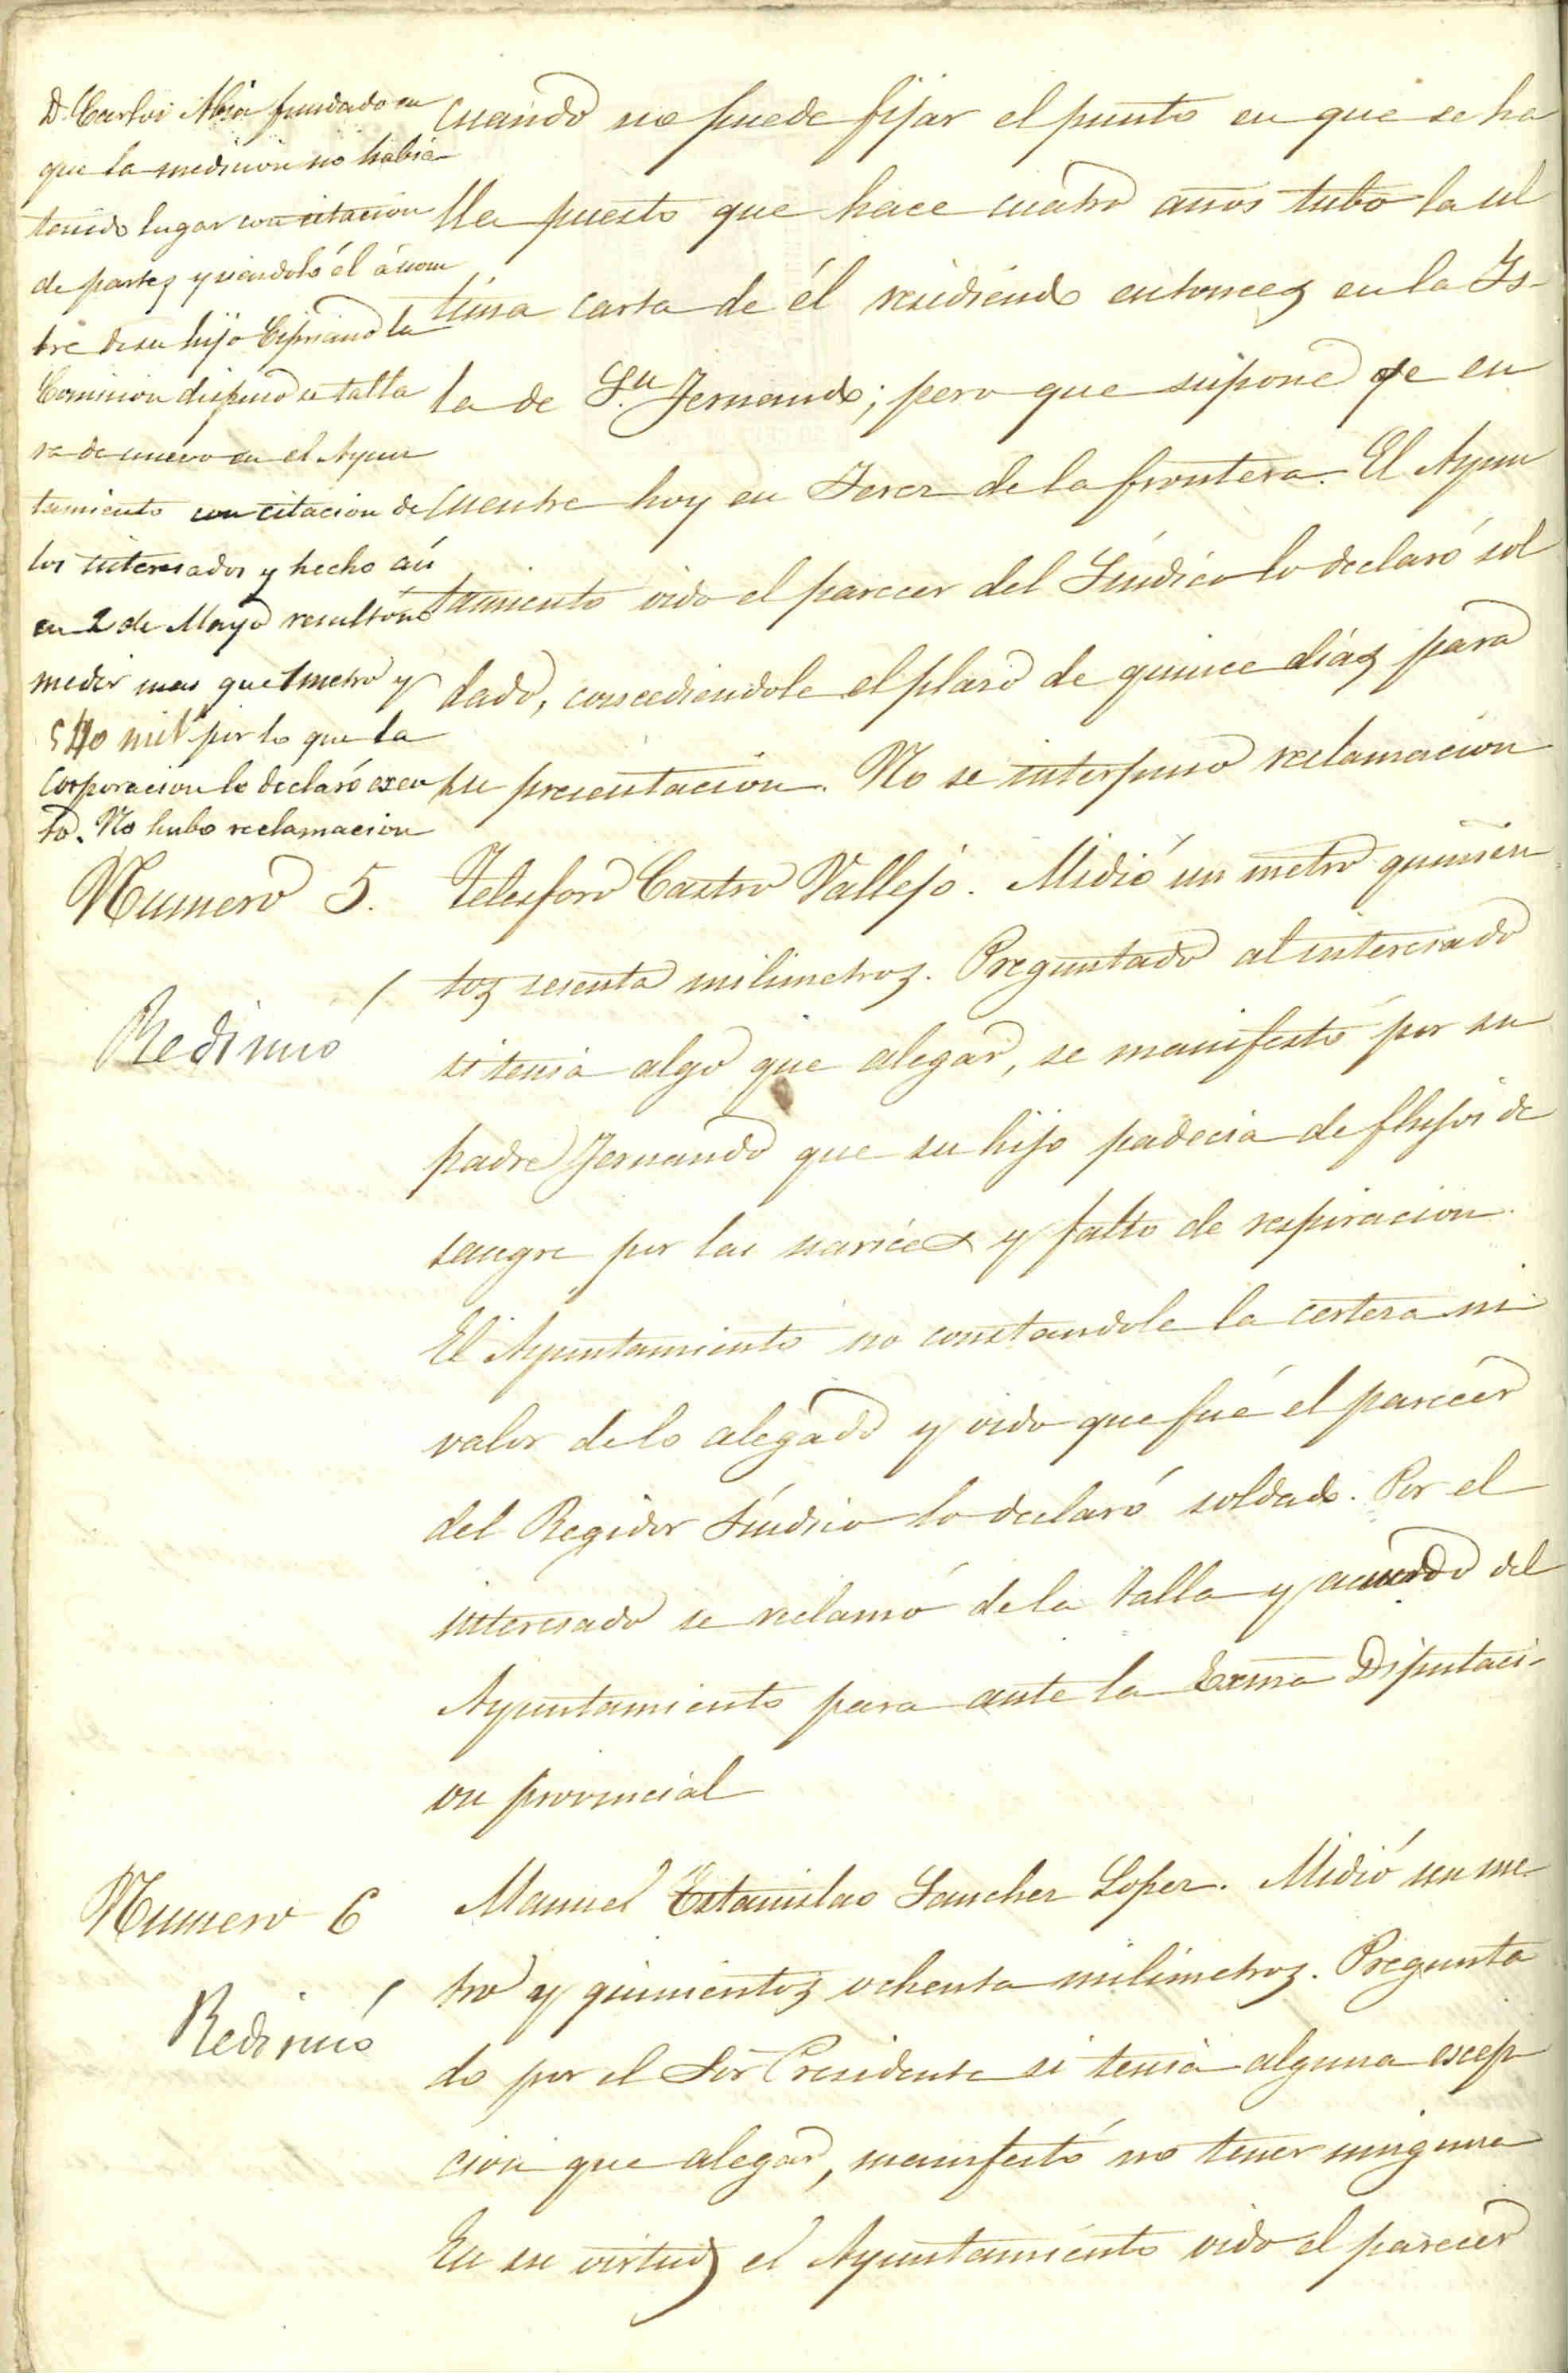 D. Carlos Abia fundado en
que la medicion no habia
tenido lugar con citacion
de partes y siendolo él á nom
bre de su hijo Cipriano la
Comision dispuso se talla
ra de nuevo en el Ayun
tamiento con citacion de
los interesados y hecho así
en 2 de Mayo resultó no
medir mas que 1 metro y
540 mil.s por lo que la
Corporacion lo declaró exen
to. No hubo reclamacion
cuando no puede fijar el punto en que se ha
lla puesto que hace cuatro años tubo la ul
tima carta de él residiendo entonces en la Is-
la de S.n Fernando; pero que supone qe en
cuentre hoy en Jerez de la frontera. El Ayun
tamiento oido el parecer del Síndico lo declaró sol
dado, conscediendole el plaso de quince días para
su presentacion. No se interpuso reclamacion
Numero 5. Telesforo Castro Vallejo. Midió un metro quinien
tos sesenta milimetros. Preguntado al interesado
Redimió
si tenia algo que alegar, se manifestó por su
padre Fernando que su hijo padecia de flujos de
sangre por las narices y falto de respiracion.
El Ayuntamiento no constandole la certeza ni
valor de lo alegado y oido que fué el parecer
del Regidor Síndico lo declaró soldado. Por el
interesado se reclamó de la talla y acuerdo del
Ayuntamiento para ante la Exma Diputaci-
on provincial
Numero 6 Manuel Estanislao Sanchez Lopez. Midió un me-
tro y quinientos ochenta milimetros. Pregunta
Redimió
do por el Sor Presidente si tenia alguna escep
cion que alegar, manifestó no tener ninguna
En su virtud el Ayuntamiento oido el parecer